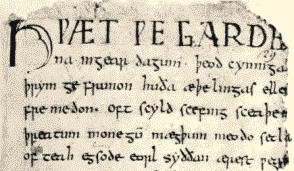 HǷÆT ǷE GARDE
na ingear dagum. þeod cyninga
þrym ge frunon huða æþelingas elle
fre medon. oft scyld scefing sceaþe
þreatum monegū mægþum meodo setla
of teah egsode eorl syððan ærest